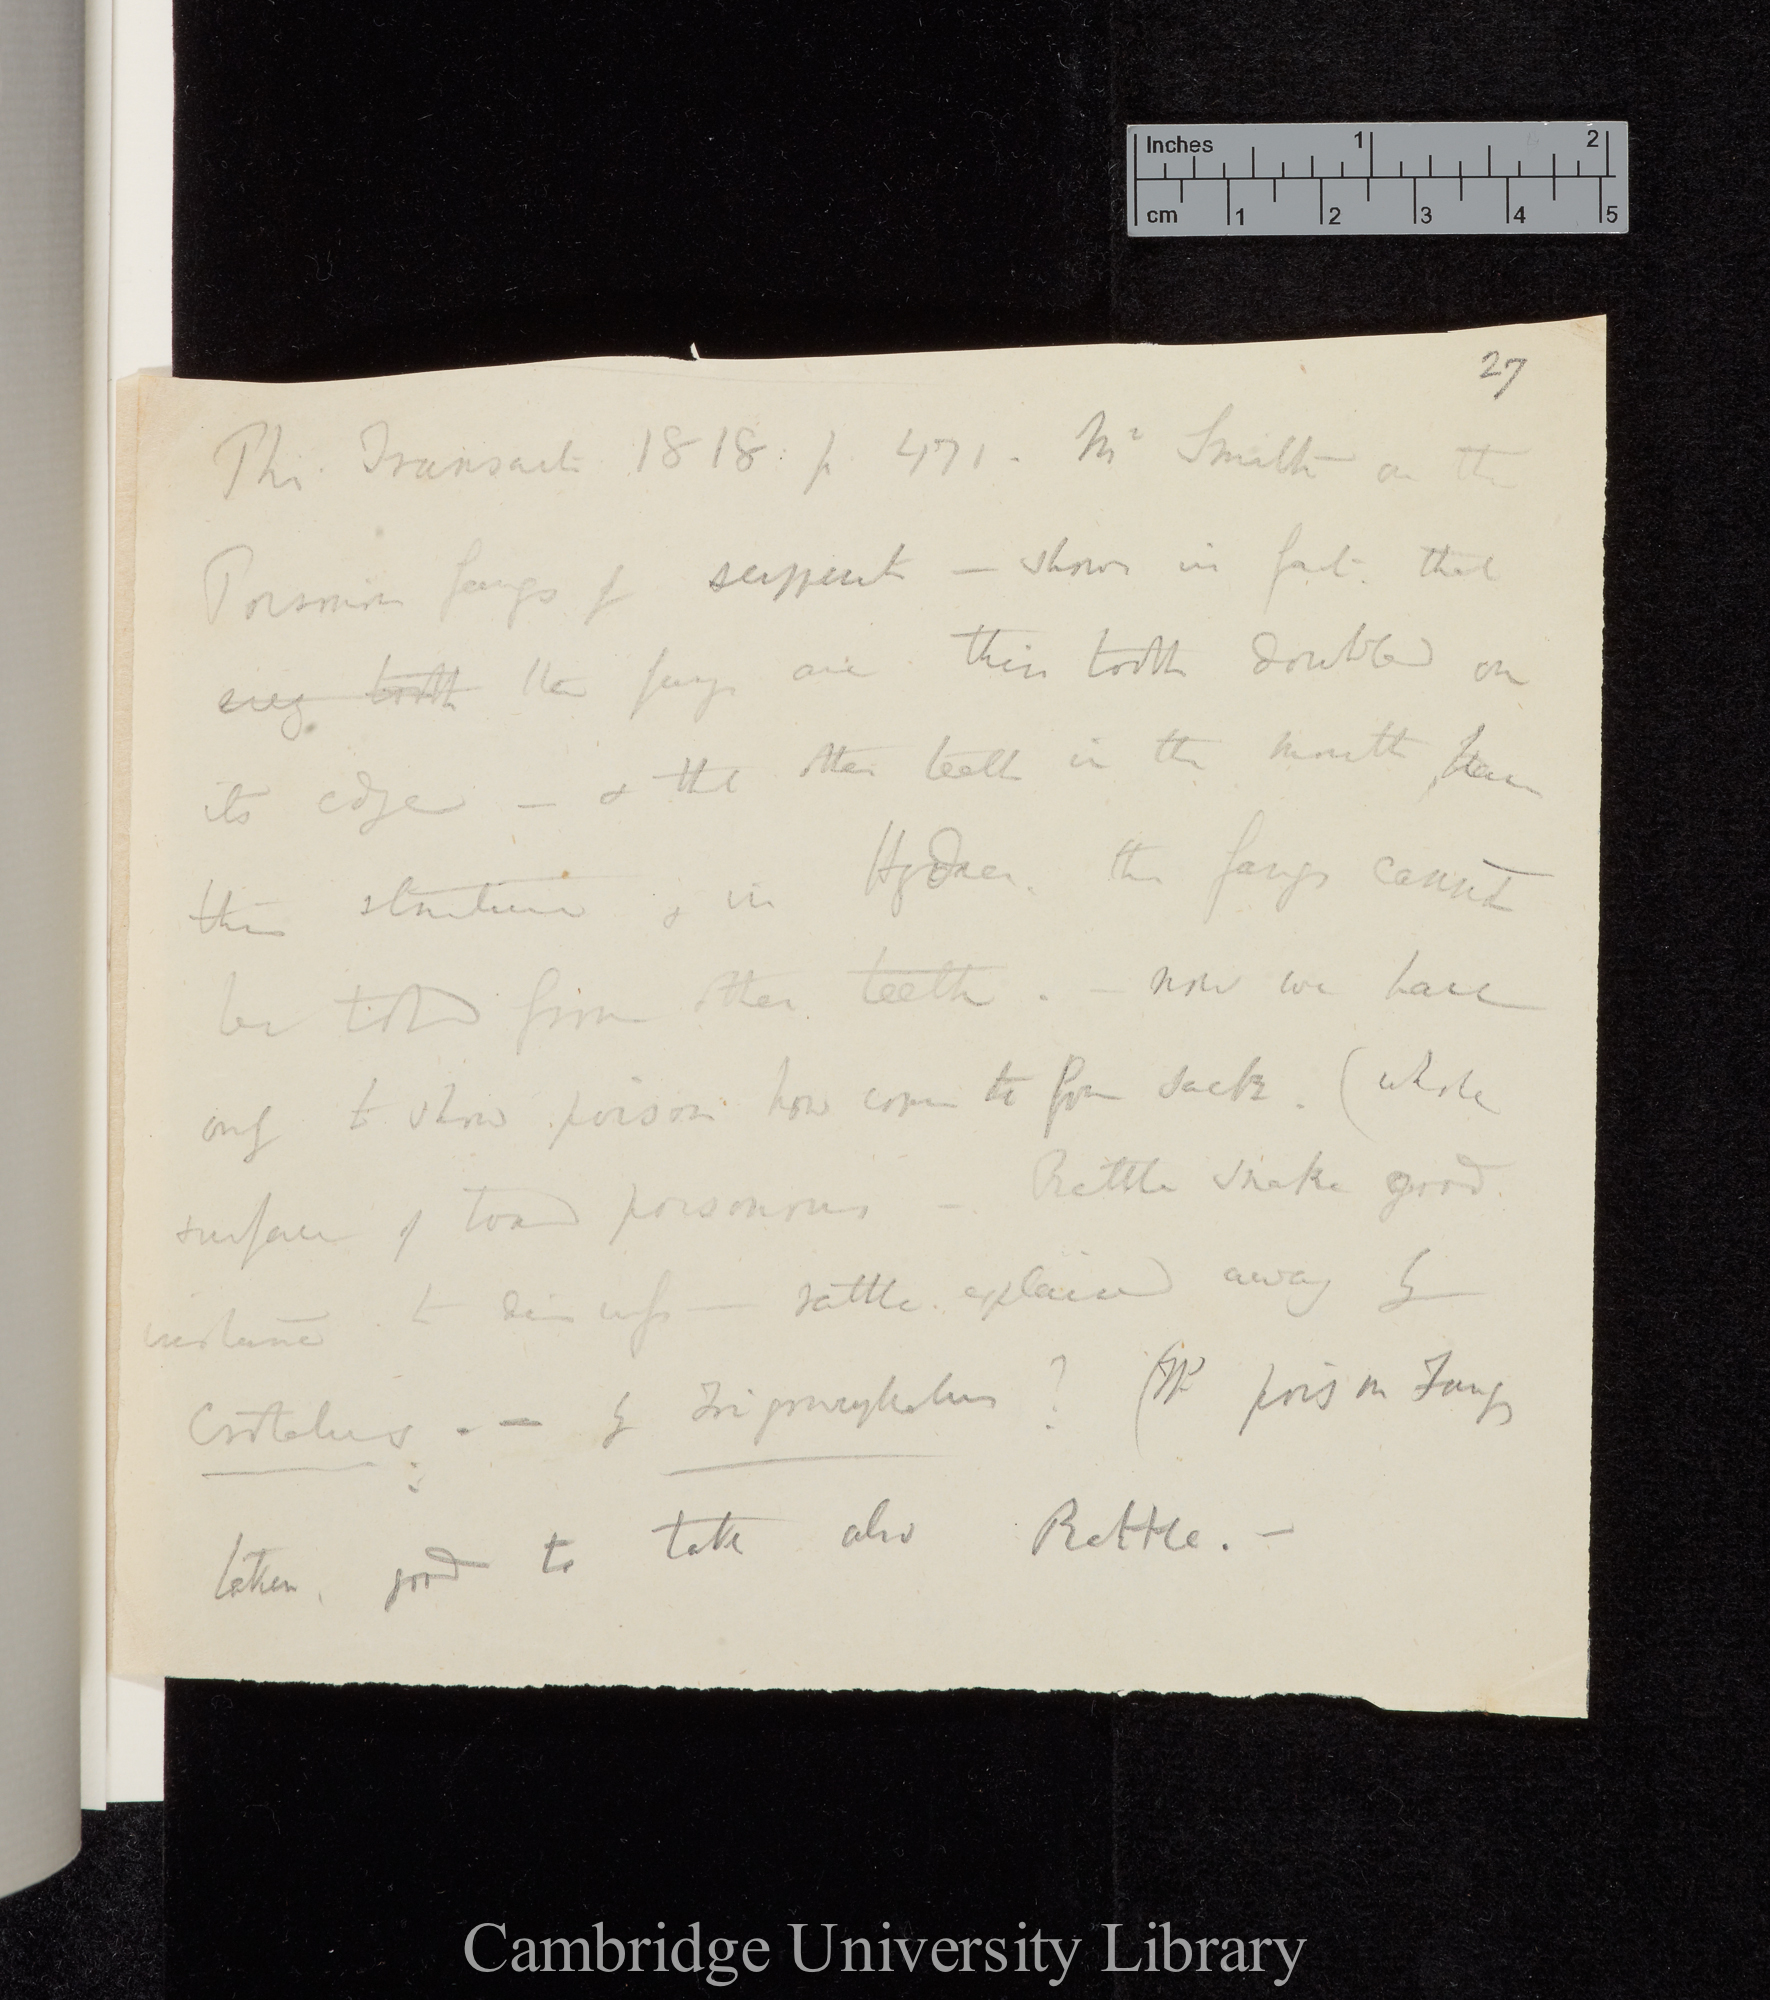 Inches 1 2
cm 1 2 3 4 5
27
Phi. Transact 1818. p 471. Mr Smith on the
Poison fangs of serpents — shows in fact. that
every tooth the fangs are thin tooth doubled on
its edge — & that other teeth in the mouth have
this structure & in Hydrus. the fangs cannot
be told from other teeth. — now we have
only to show poison how come to form sack. (whole
surface of toad poisonous — Rattle snake good
instance to discuss — rattle explained away by
Crotalus. — by Trigonocephalus? (If poison Fangs
taken, good to take also Rattle. —
Cambridge University Library